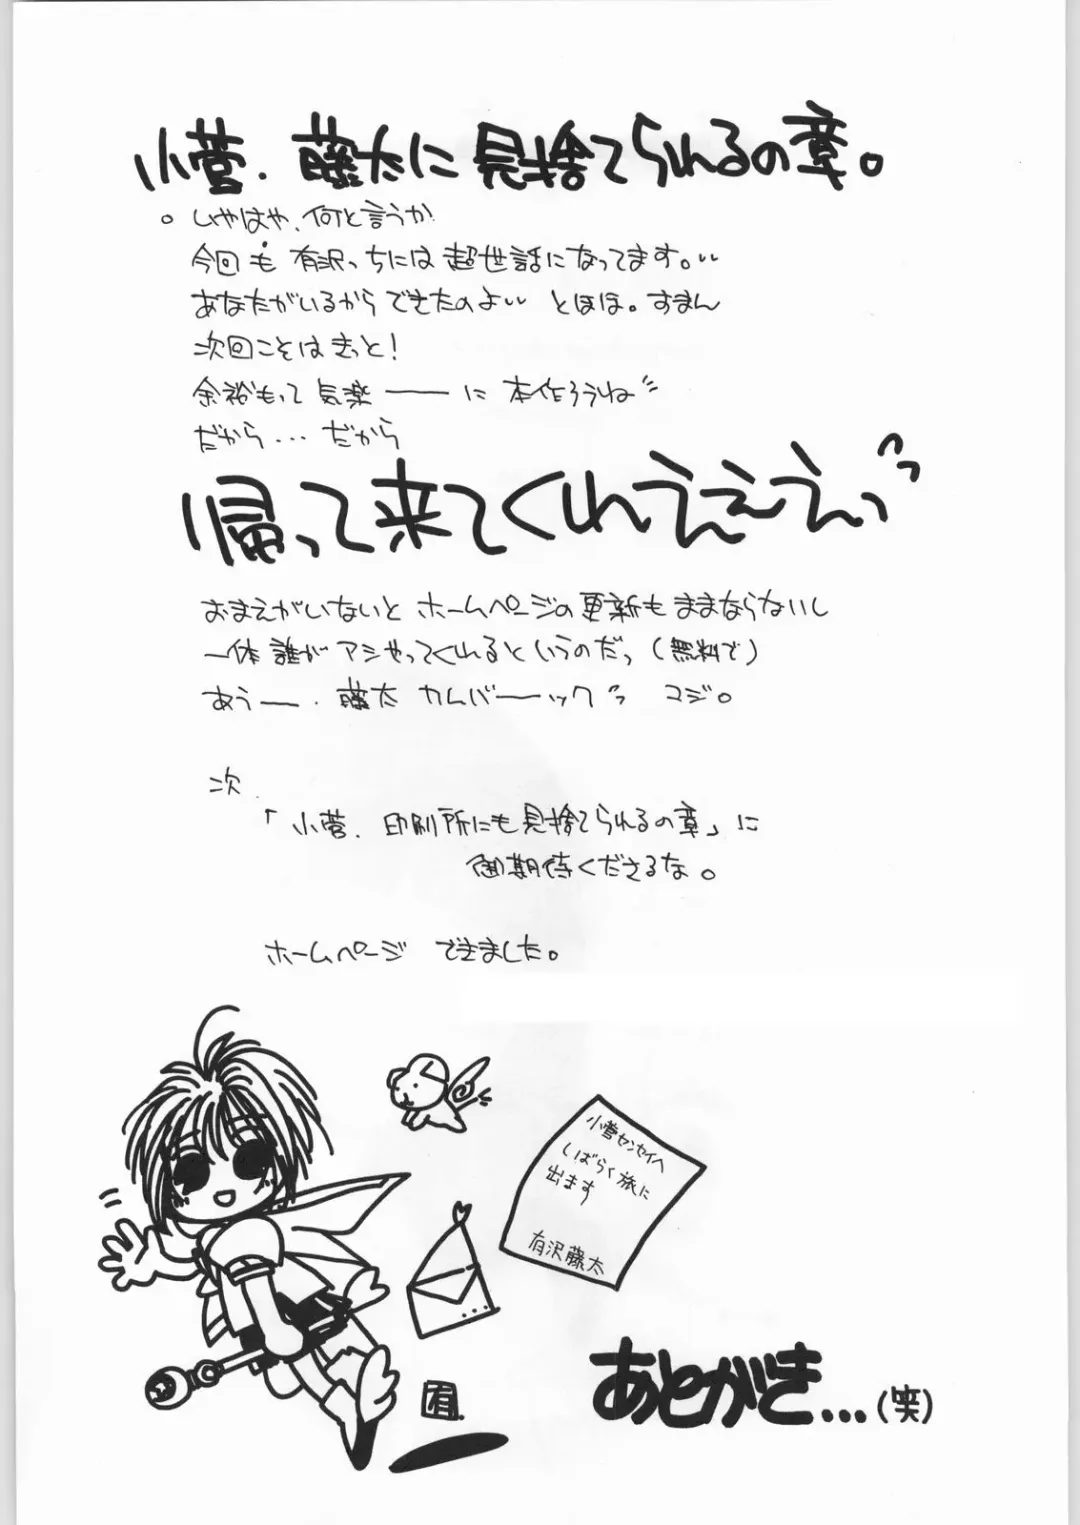 小菅、藤太に見捨てられるの章。
。いやはや、何と言うか
今回も有沢っちには超世話になってます。‥
あなたがいるからできたのよ‥ とほほ。すまん
次回こそはきっと!
余裕もって気楽ーーに本作ろうね〃
だから...だから
帰って来てくれえぇえぇっ〃
おまえがいないとホームページの更新もままならないし
一体誰がアシやってくれるというのだっ(無料で)
あうー、藤太カムバーックっ コジ。
次、
「小菅、印刷所にも見捨てられるの章」に
御期待くださるな。
ホームページ できました。
小菅センセイへ
しばらく旅に
出ます
有沢藤太
有
あとがき...(笑)